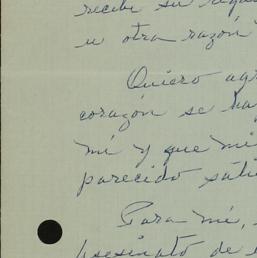 recibí su rega
u otra razón
Quiero agr
corazón se ha
mí y que mi
parecido sáti
Para mí,
asesinato de